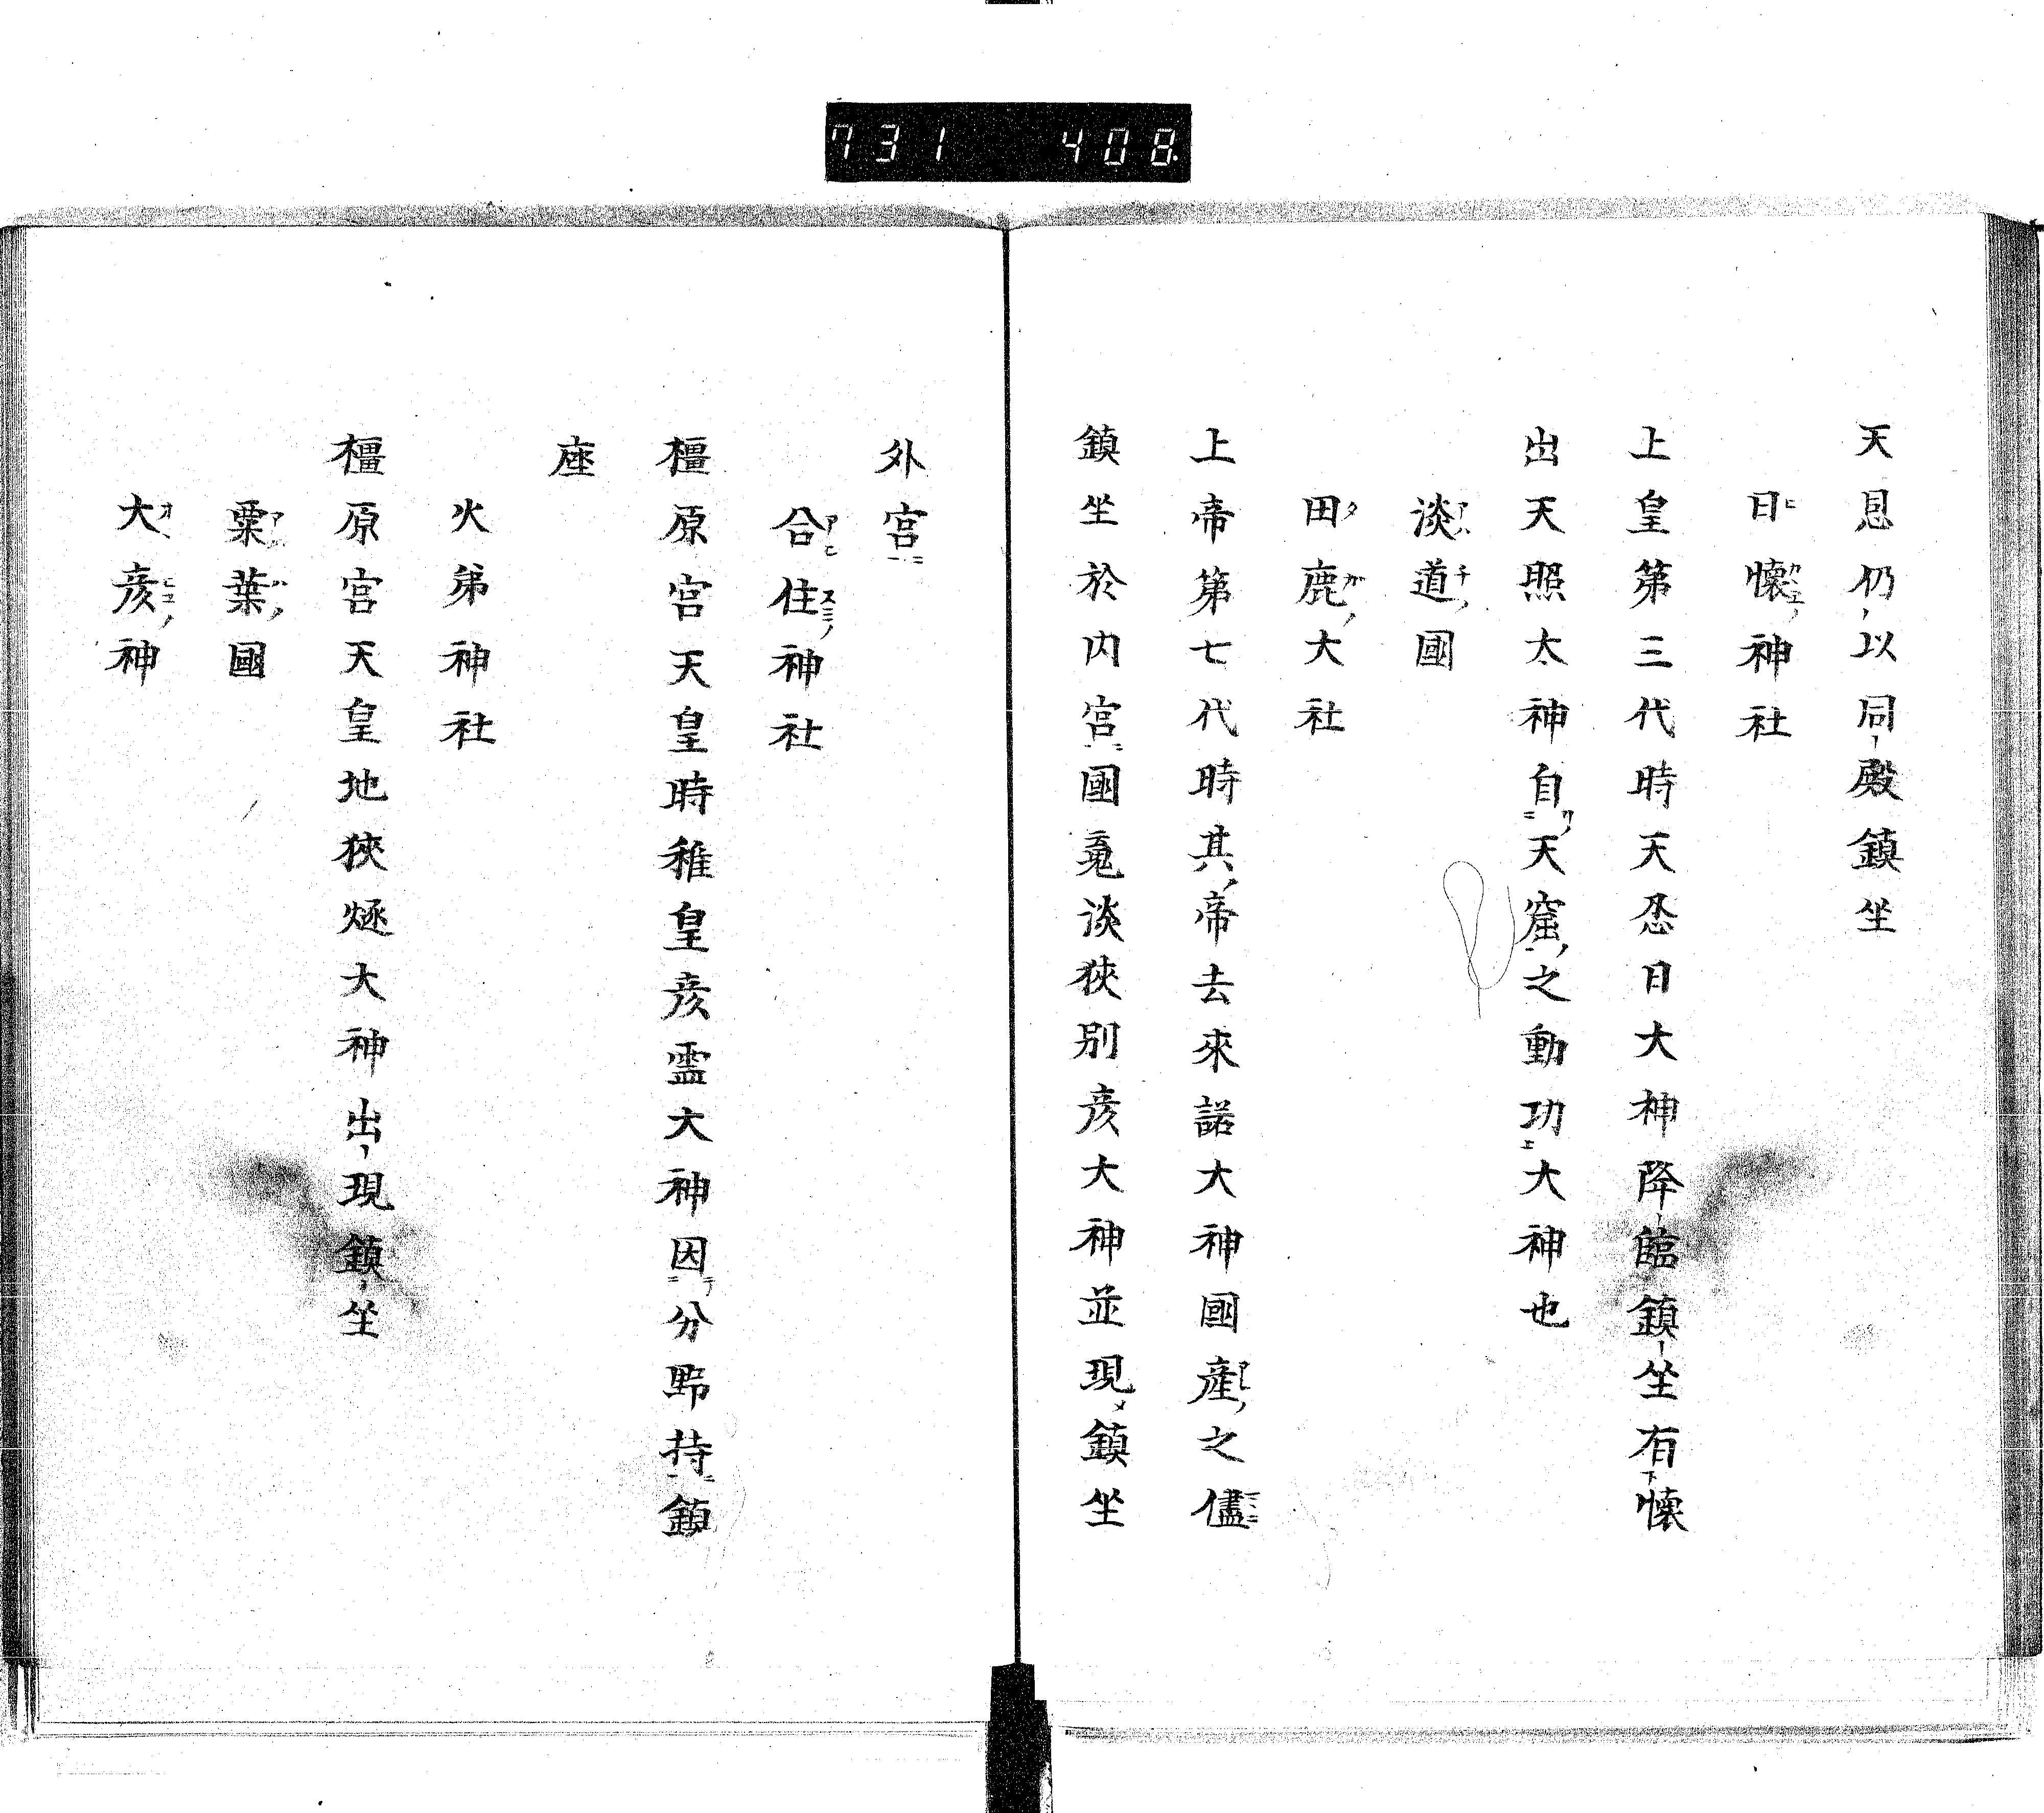 731 408
天恩仍以同殿鎮坐
日懷神社
上皇第三代時天忍日大神降臨鎮坐有懷
出天照太神自天窟之動功大神也
淡道國
田鹿大社
上帝第七代時其帝去來諾大神國産之儘
鎮坐於内宮國竟淡狹別彦大神並現鎮坐
外宮
合住神社
橿原宮天皇時稚皇彦霊大神因分野持鎮
座
火弟神社
橿原宮天皇地狹燧大神出現鎮坐
粟葉國
大彦神